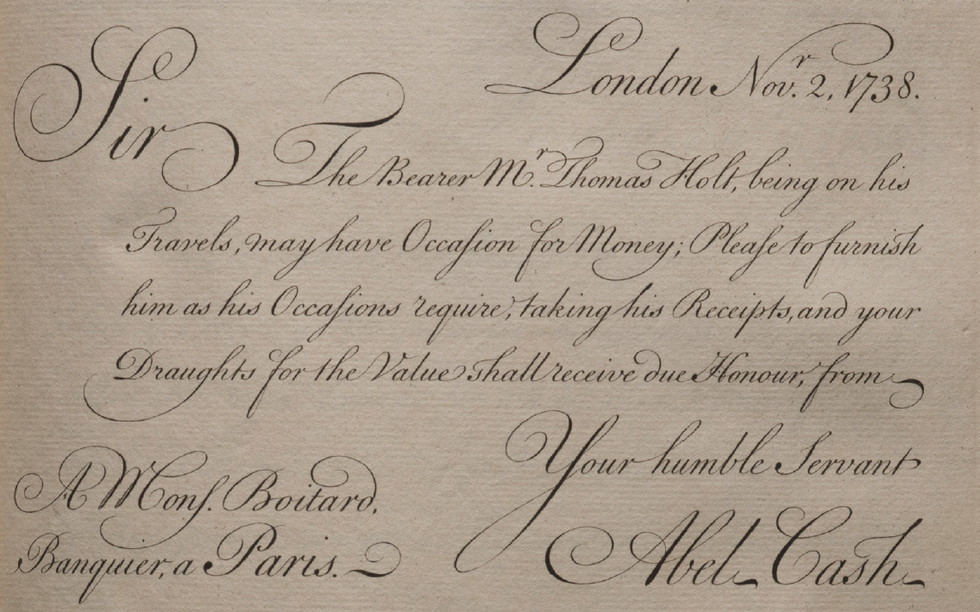 London Nov.r 2, 1738.
Sir
The Bearer M.r Thomas Holt, being on his
Travels, may have Occasion for Money; Please to furnish
him as his Occasions require, taking his Receipts, and your
Draughts for the Value shall receive due Honour, from
Your humble Servant
A Mons. Boitard,
Banquier, a Paris.
Abel Cash